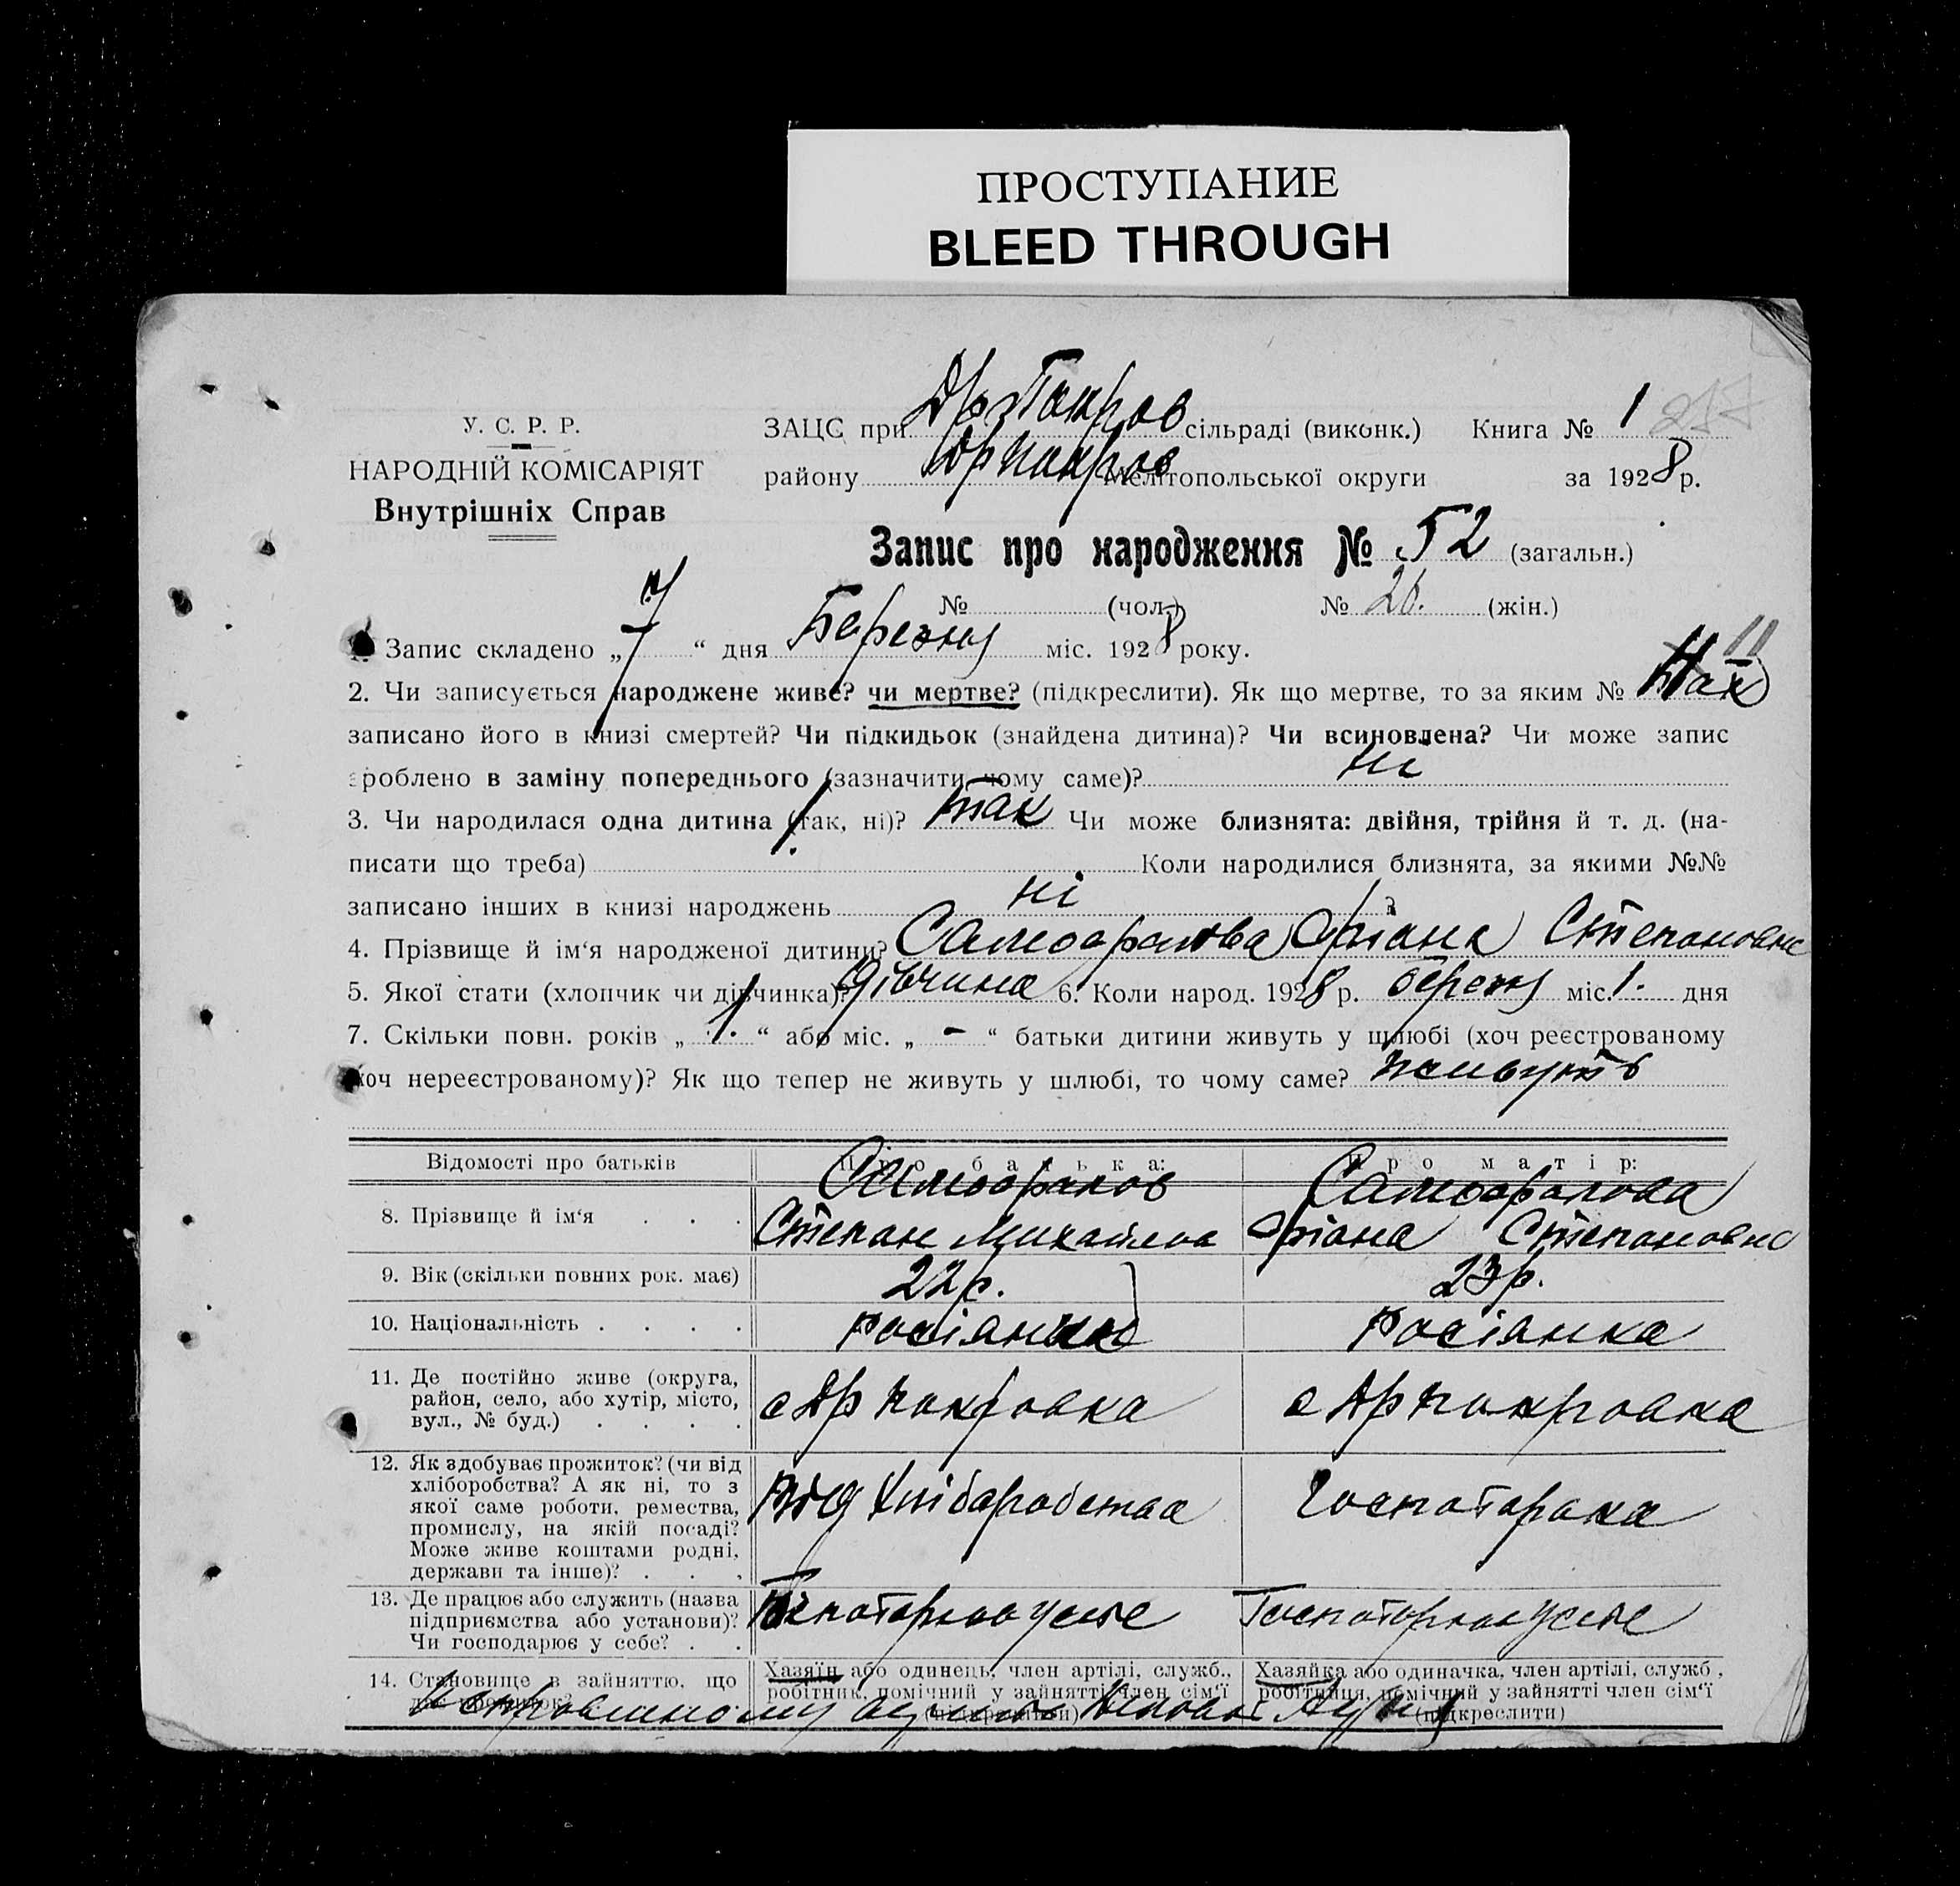 ПРОСТУПАНИЕ
BLEED THROUGH
У. С. Р. Р.
НАРОДНІЙ КОМІСАРІЯТ
Внутрішніх Справ
ЗАЦС при сільраді (виконк.) Книга № 1 277
району Мелітопольської округи за 1928 р.
Запис про народження № 52 (загальн.)
№ (чол.) № 26. (жін.)
1. Запис складено „7“ дня Березня міс. 1928 року.
2. Чи записується народжене живе? чи мертве? (підкреслити). Як що мертве, то за яким №
записано його в книзі смертей? Чи підкидьок (знайдена дитина)? Чи всиновлена? Чи може запис
зроблено в заміну попереднього (зазначити чому саме)? ні
3. Чи народилася одна дитина (так, ні)? так Чи може близнята: двійня, трійня й т. д. (на-
писати що треба) Коли народилися близнята, за якими №№
записано інших в книзі народжень ні ?
4. Прізвище й ім‘я народженої дитини? Степановна
5. Якої стати (хлопчик чи дівчинка)? Дівчина 6. Коли народ. 1928 р. березня міс. 1. дня
7. Скільки повн. років „1.“ або міс. „-“ батьки дитини живуть у шлюбі (хоч реєстрованому
хоч нереєстрованому)? Як що тепер не живуть у шлюбі, то чому саме?
Відомості про батьків Про батька: Про матір:
8. Прізвище й ім‘я . . . Степан Степановна
9. Вік (скільки повних рок. має) 22р. 23р.
10. Національність . . . . росіянин росіянка
11. Де постійно живе (округа,
район, село, або хутір, місто,
вул., № буд.) . . . .
с Ар Покровка с Ар Покровка
12. Як здобуває прожиток? (чи від
хліборобства? А як ні, то з
якої саме роботи, ремества,
промислу, на якій посаді?
Може живе коштами родні,
держави та інше)? . . .
від
13. Де працює або служить (назва
підприємства або установи)?
Чи господарює у себе? . .
14. Становище в зайняттю, що
дає прожиток?
Хазяїн або одинець, член артілі, служб.,
робітник, помічний у зайнятті член сім‘ї
(підкреслити)
Хазяйка або одиначка, член артілі, служб.,
робітниця, помічний у зайнятті член сім‘ї
(підкреслити)